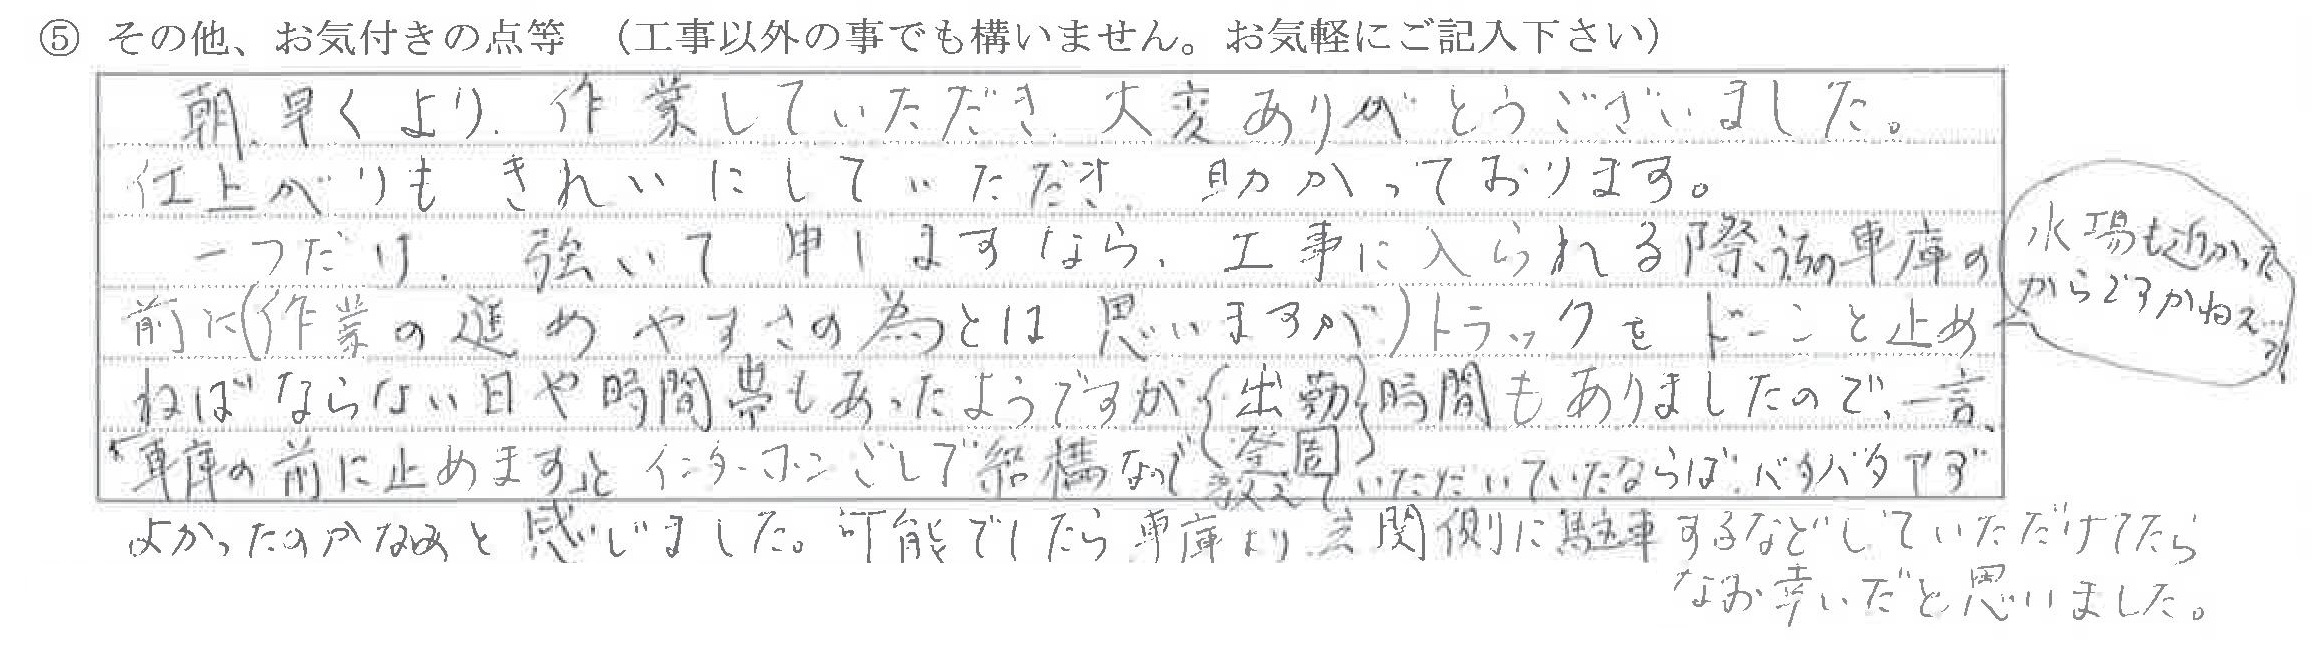 ⑤ その他、お気付きの点等 （工事以外の事でも構いません。お気軽にご記入下さい）
朝、早くより、作業していただき、大変ありがとうございました。
仕上がりもきれいにしていただき、助かっております。
一つだけ、強いて申しますなら、工事に入られる際、うちの車庫の
前に(作業の進めやすさの為とは思いますが)トラックをドーンと止め
ねばならない日や時間帯もあったようですが{出勤 登園}時間もありましたので、一言、
「車庫の前に止めます」とインターホンごしで結構なので教えていただいていたならば、バタバタせず
よかったのかなぁと感じました。可能でしたら車庫より玄関側に駐車するなどしていただけてたら
なお幸いだと思いました。
水場も近かった
からですかねぇ…?!